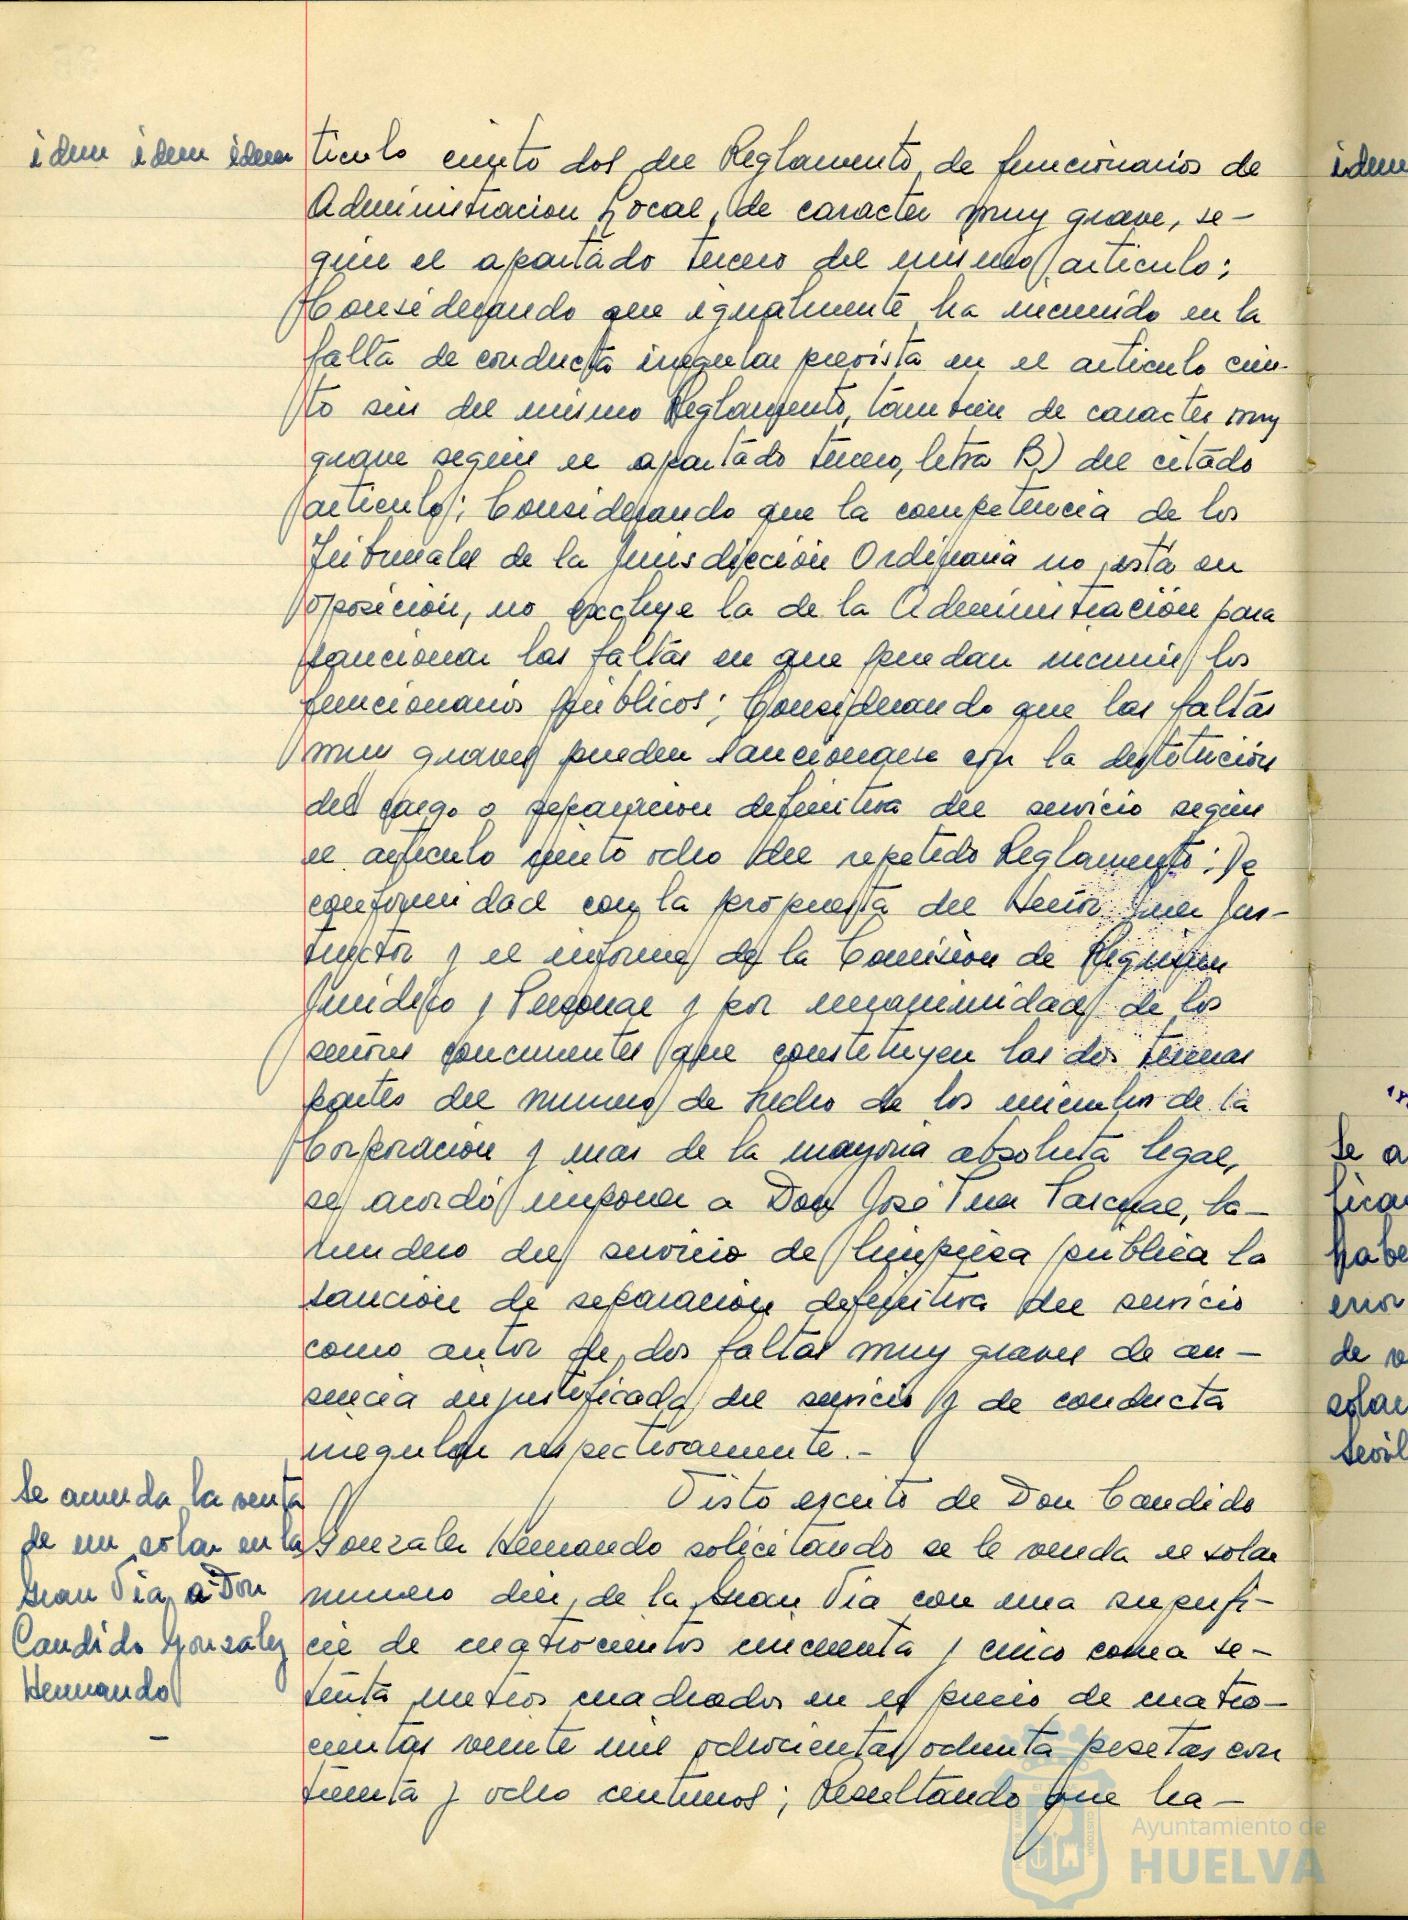 idem idem idem
ticulo ciento dos del Reglamento de funcionarios de
Administracion Local, de caracter muy grave, se-
gún el apartado tercero del mismo articulo;
Considerando que igualmente ha incurrido en la
falta de conducta irregular prevista en el articulo cien-
to seis del mismo Reglamento, tambien de caracter muy
grave según el apartado tercero, letra B) del citado
articulo; Considerando que la competencia de los
Tribunales de la Jurisdicción Ordinaria no está en
oposición, no excluye la de la Administración para
sancionar las faltas en que puedan incurrir los
funcionarios públicos; Considerando que las faltas
muy graves pueden sancionarse con la destitución
del cargo o separacion definitiva del servicio según
el articulo ciento ocho del repetido Reglamento; De
conformidad con la propuesta del Señor Juez Ins-
tructor y el informe de la Comisión de Régimen
Juridico y Personal y por unanimidad de los
señores concurrentes que constituyen las dos terceras
partes del numero de hecho de los miembros de la
Corporación y mas de la mayoria absoluta legal,
se acordó imponer a Don José Pascual, ba-
rrendero del servicio de limpieza pública la
sanción de separación definitiva del servicio
como autor de dos faltas muy graves de au-
sencia injustificada del servicio y de conducta
irregular respectivamente.-
Se acuerda la venta
de un solar en la
Gran Via a Don
Candido Gonzalez
Hernando
-
Visto escrito de Don Candido
Gonzalez Hernando solicitando se le venda el solar
numero diez de la Gran Via con una superfi-
cie de cuatrocientos cincuenta y cinco coma se-
tenta metros cuadrados en el precio de cuatro-
cientas veinte mil ochocientas ochenta pesetas con
treinta y ocho centimos; Resultando que ha-
idem
Se a
habe
error
de v
solar
Sevil
Ayuntamiento de
HUELVA